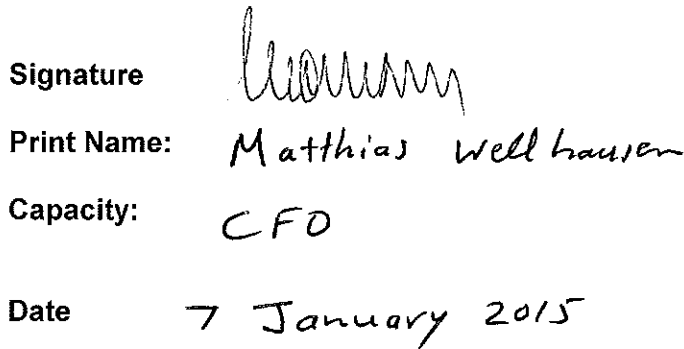 Signature
Print Name: Matthias Wellhausen
Capacity: CFO
Date 7 January 2015